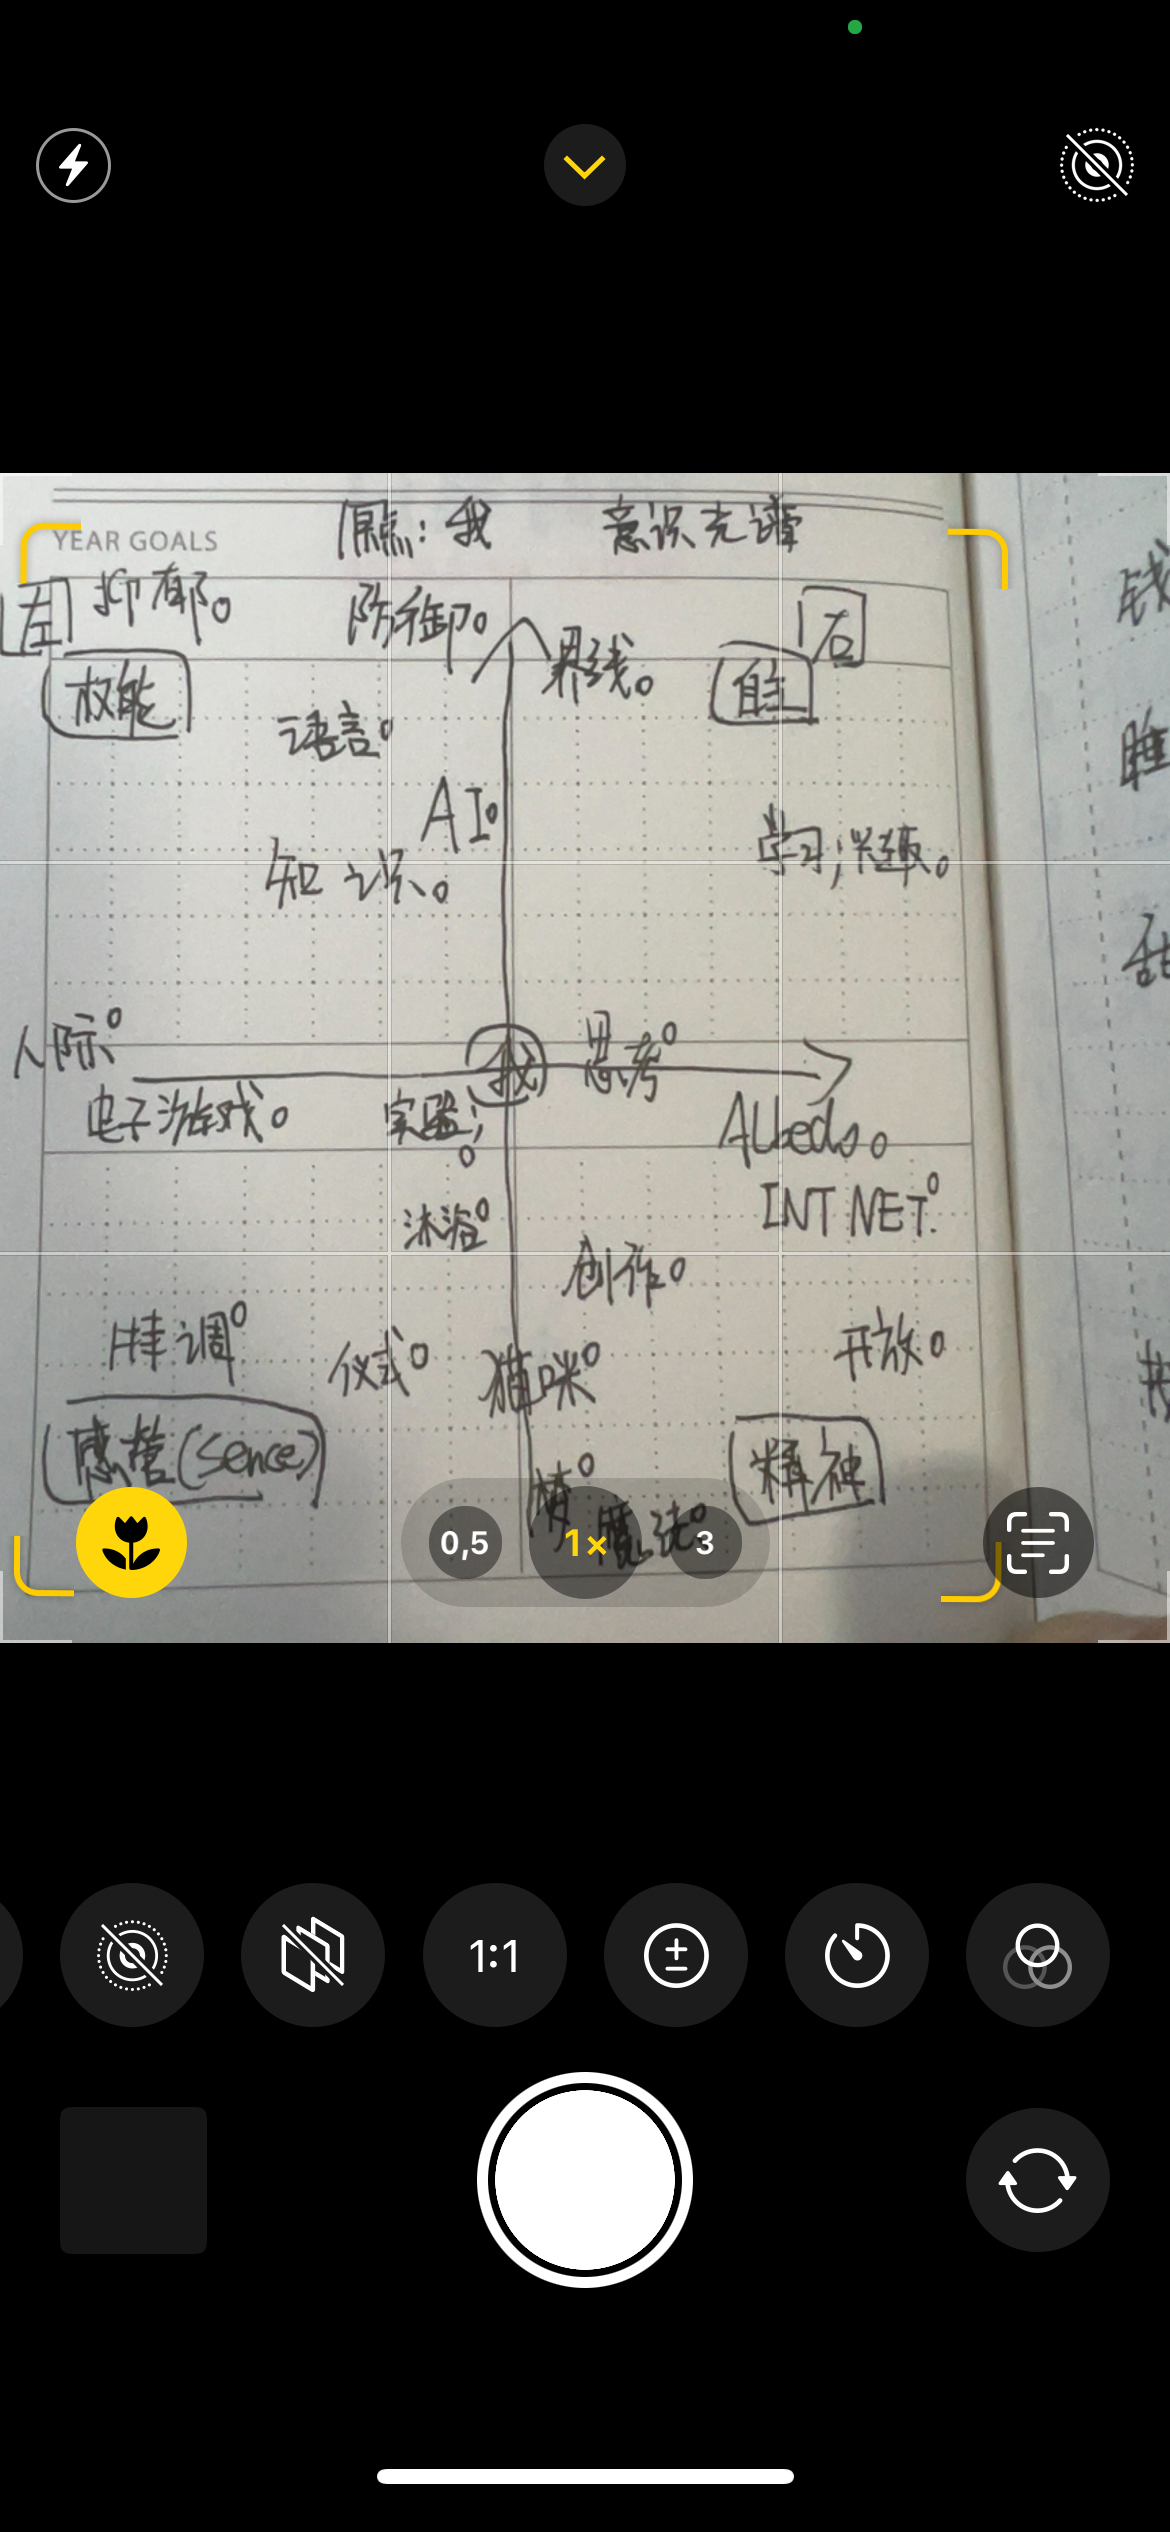 YEAR GOALS
焦:我 意识光谱
左 抑郁。 防御。 右
界线。
权能 自主
语言。
AI。
知识。 学习;兴趣。
人际。 我 思考。
电子游戏。 实验;。 Albedo。
沐浴。 INT NET.。
创作。
调。 仪式。 猫咪。 开放。
感管(Sence) 精神
梦。
魔法。
0,5 1× 3
钱
睡
1:1